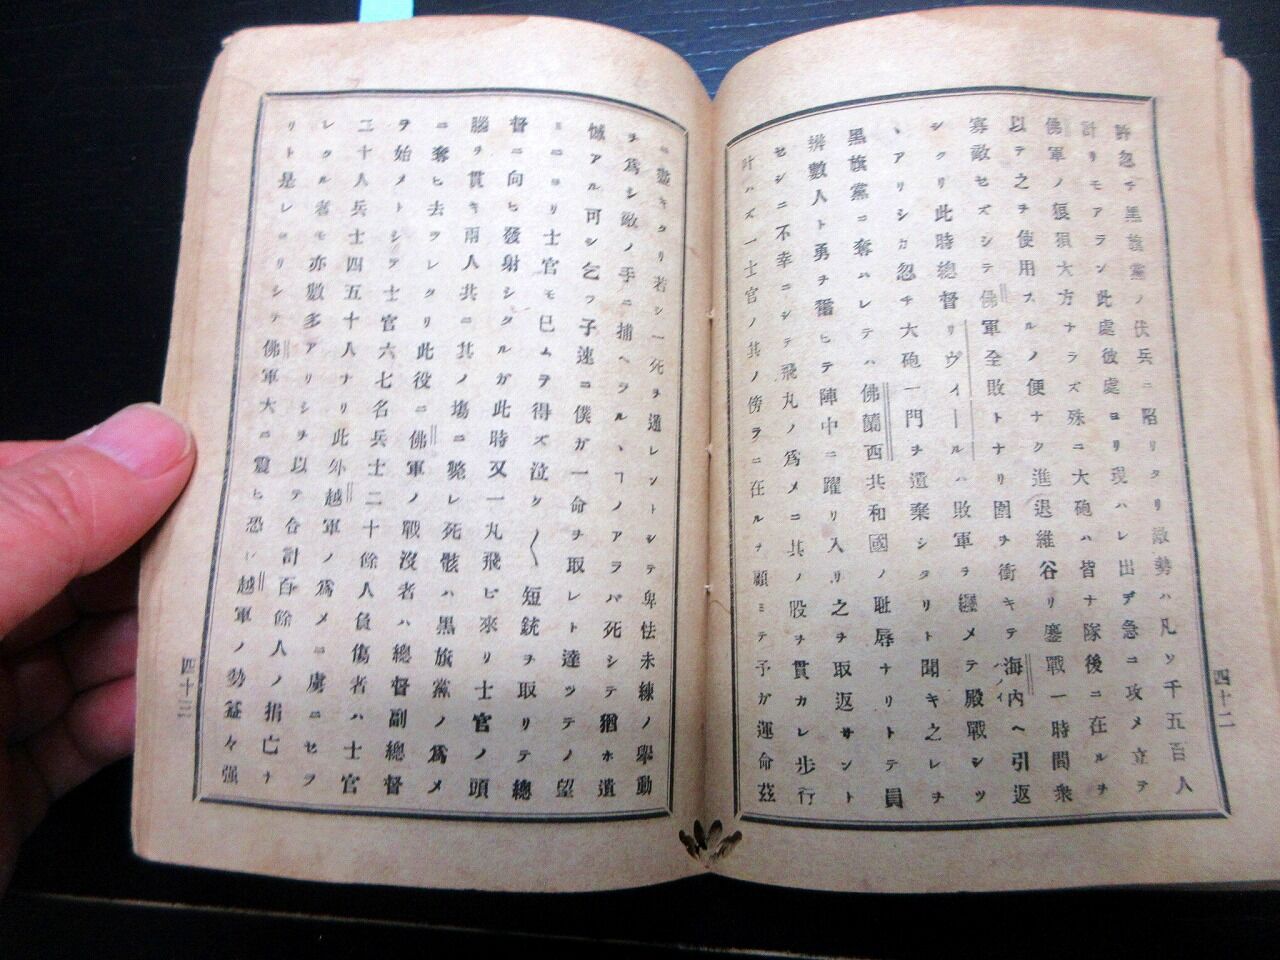 許忽チ黒旗黨ノ伏兵ニ陷リタリ敵勢ハ凡ソ千五百人
計リモアラン此處彼處ヨリ現ハレ出デ急ニ攻メ立テ
佛軍ノ狼狽大方ナラズ殊ニ大砲ハ皆ナ隊後ニ在ルヲ
以テ之ヲ使用スルノ便ナク進退維谷リ鏖戰一時間衆
寡敵セズシテ佛軍全敗トナリ圍ヲ衝キテ海内ヘ引返
ハノイ
シタリ此時總督リヴイールハ敗軍ヲ纏メテ殿戰シツ
、アリシカ忽チ大砲一門ヲ遺棄シタリト聞キ之レヲ
黑旗黨ニ奪ハレテハ佛蘭西共和國ノ耻辱ナリトテ員
辨數人ト勇ヲ奮ヒテ陣中ニ躍リ入リ之ヲ取返サント
セシニ不幸ニシテ飛丸ノ爲メニ其ノ股ヲ貫カレ步行
叶ハズ一士官ノ其ノ傍ラニ在ルヲ顧ミテ予ガ運命茲
四十二
ニ盡キタリ若シ一死ヲ遁レントシテ卑怯未練ノ擧動
ヲ爲シ敵ノ手ニ捕ヘラル、ヿノアラバ死シテ猶ホ遺
憾アル可シ乞フ子速ニ僕ガ一命ヲ取レト達ツテノ望
ミニヨリ士官モ已ムヲ得ズ泣ク〱短銃ヲ取リテ總
督ニ向ヒ發射シタルガ此時又一丸飛ビ來リ士官ノ頭
腦ヲ貫キ兩人共ニ其ノ塲ニ斃レ死骸ハ黑旗黨ノ爲メ
ニ奪ヒ去ラレタリ此役ニ佛軍ノ戰沒者ハ總督副總督
ヲ始メトシテ士官六七名兵士二十餘人負傷者ハ士官
二十人兵士四五十人ナリ此外越軍ノ爲メニ虜ニセラ
レタル者モ亦數多アリシヲ以テ合計百餘人ノ損亡ナ
リト是レヨリシテ佛軍大ニ震ヒ恐レ越軍ノ勢益々强
四十三